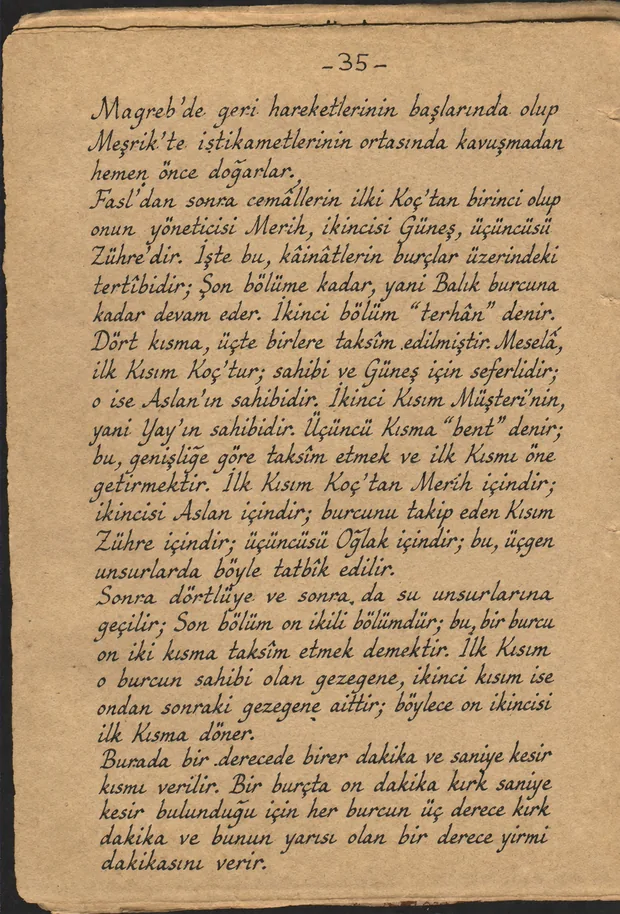 -35-
Magreb'de geri hareketlerinin başlarında olup
Meşrik'te istikametlerinin ortasında kavuşmadan
hemen önce doğarlar.
Fasl'dan sonra cemâllerin ilki Koç'tan birinci olup
onun yöneticisi Merih, ikincisi Güneş, üçüncüsü
Zühre'dir. İşte bu, kâinâtlerin burçlar üzerindeki
tertîbidir; Son bölüme kadar, yani Balık burcuna
kadar devam eder. İkinci bölüm "terhân" denir.
Dört kısma, üçte birlere taksîm edilmiştir. Meselâ,
ilk Kısım Koç'tur; sahibi ve Güneş için seferlidir;
o ise Aslan'ın sahibidir. İkinci Kısım Müşteri'nin,
yani Yay'ın sahibidir. Üçüncü Kısma "bent" denir;
bu, genişliğe göre taksîm etmek ve ilk Kısmı öne
getirmektir. İlk Kısım Koç'tan Merih içindir;
ikincisi Aslan içindir; burcunu takip eden Kısım
Zühre içindir; üçüncüsü Oğlak içindir; bu, üçgen
unsurlarda böyle tatbîk edilir.
Sonra dörtlüye ve sonra da su unsurlarına
geçilir; Son bölüm on ikili bölümdür; bu, bir burcu
on iki kısma taksîm etmek demektir. İlk Kısım
o burcun sahibi olan gezegene, ikinci kısım ise
ondan sonraki gezegene aittir; böylece on ikincisi
ilk Kısma döner.
Burada bir derecede birer dakika ve saniye kesir
kısmı verilir. Bir burçta on dakika kırk saniye
kesir bulunduğu için her burcun üç derece kırk
dakika ve bunun yarısı olan bir derece yirmi
dakikasını verir.